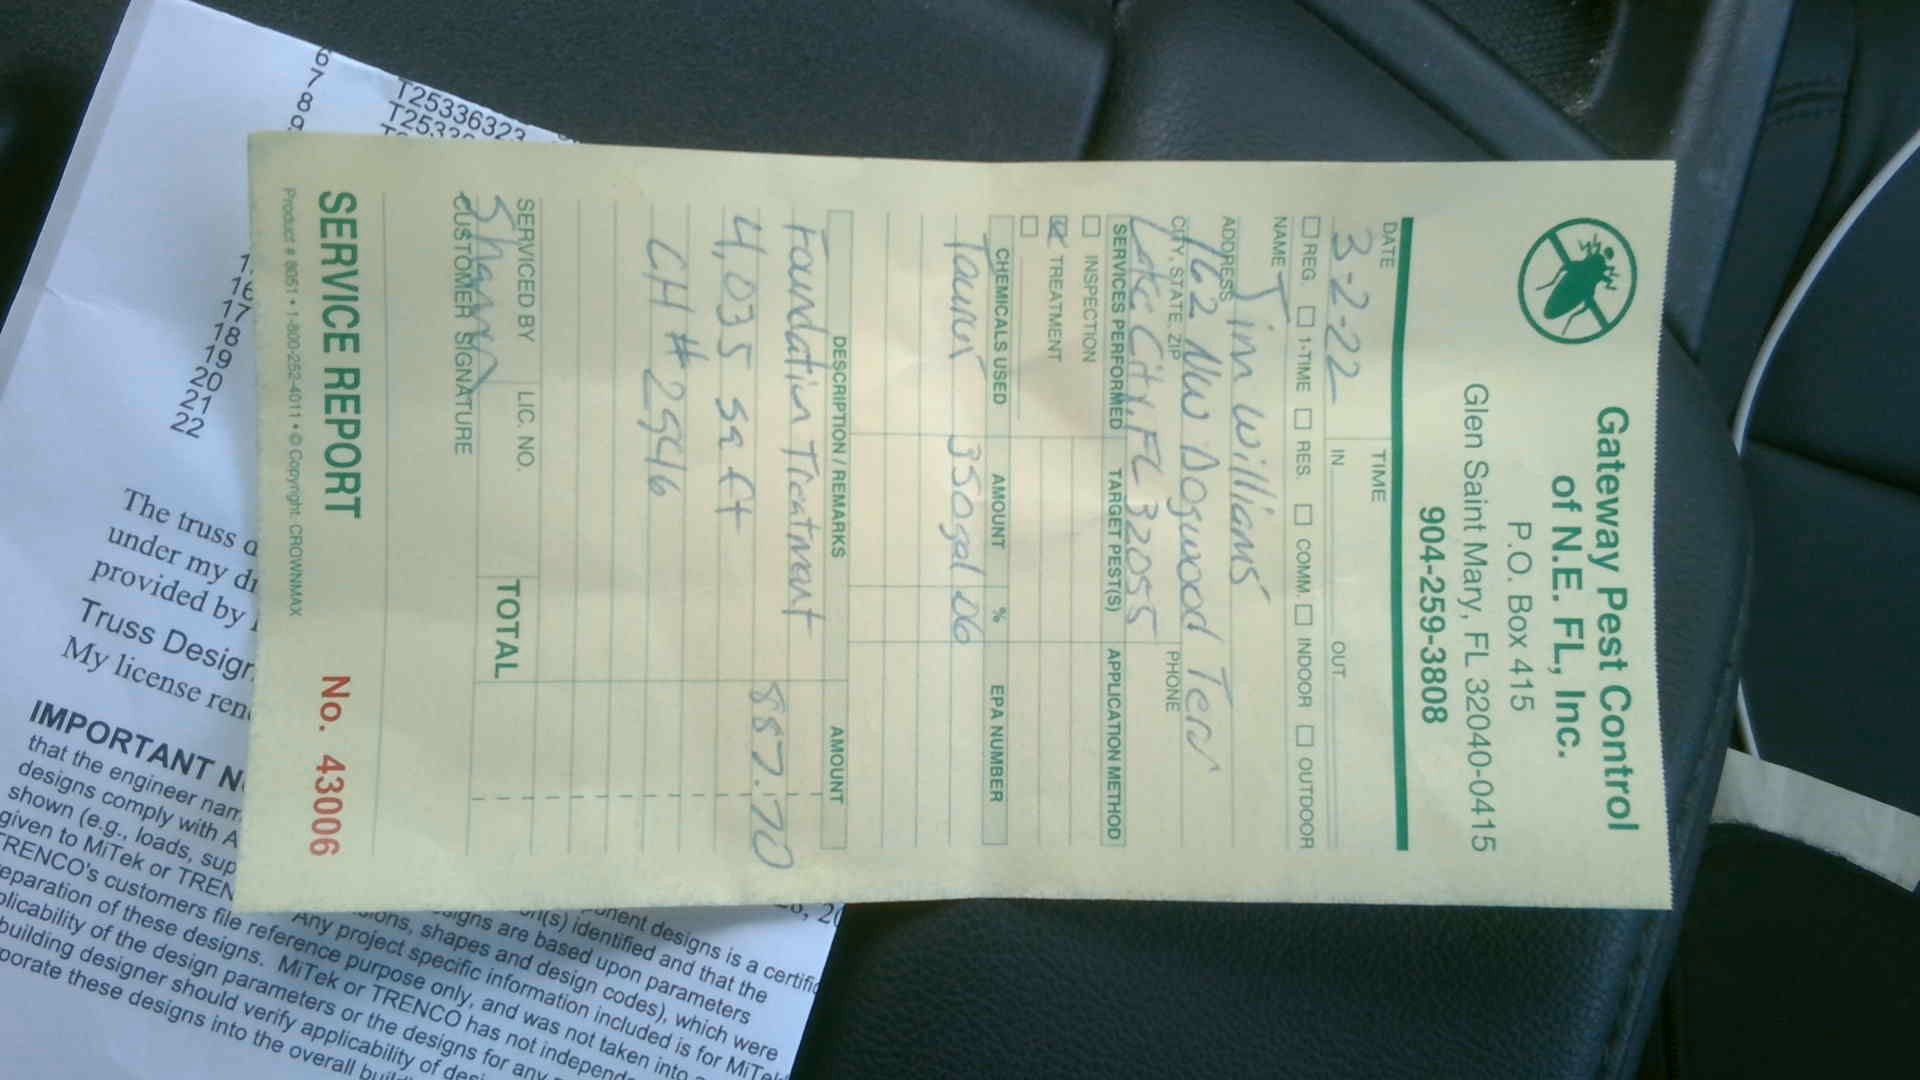 Gateway Pest Control
of N.E. FL, Inc.
P.O. Box 415
Glen Saint Mary, FL 32040-0415
904-259-3808
DATE TIME
3-2-22 IN OUT
REG. 1-TIME RES. COMM. INDOOR OUTDOOR
NAME Jim Williams
ADDRESS 162 NW Dogwood Terr
CITY, STATE, ZIP PHONE
Lake City, FL 32055
SERVICES PERFORMED TARGET PEST(S) APPLICATION METHOD
INSPECTION
TREATMENT
CHEMICALS USED AMOUNT % EPA NUMBER
Taurus 350gal .06
DESCRIPTION / REMARKS AMOUNT
Foundation Treatment 887.70
4,035 sq ft
CH # 2546
SERVICED BY LIC. NO. TOTAL
Shawn
CUSTOMER SIGNATURE
SERVICE REPORT No. 43006
Product # 8051 • 1-800-252-4011 • © Copyright CROWNMAX
6
7 T25336323
8
9
16
17
18
19
20
21
22
The truss
under my
provided by
Truss Design
My license
IMPORTANT
that the engineer
designs comply with
shown (e.g., loads,
given to MiTek or
TRENCO's customers file reference purpose only, and was not taken into
of these designs. MiTek or TRENCO has not
of the design parameters or the designs for any
building designer should verify applicability of
these designs into the overall
designs is a
identified and that the
are based upon parameters
shapes and design codes), which were
Any project specific information included is for